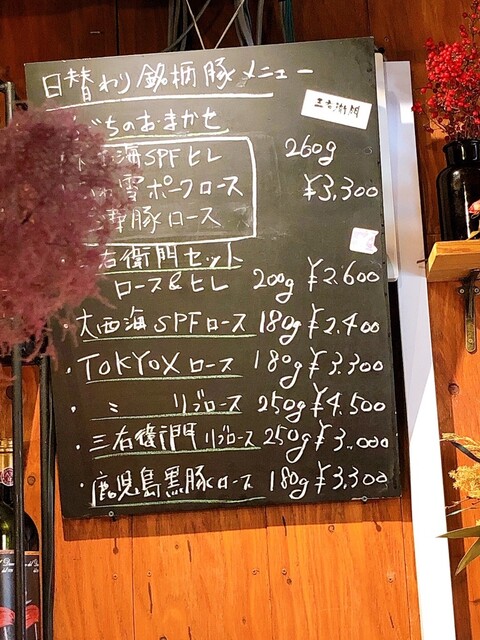 日替わり銘柄豚メニュー
三右衛門
ちのおまかせ
海SPFヒレ 260g
雪ポークロース ¥3,300
豚ロース
右衛門セット
ロース&ヒレ 200g ¥2,600
・大西海SPFロース 180g ¥2,400
・TOKYOXロース 180g ¥3,300
・〃 リブロース 250g ¥4,500
・三右衛門リブロース 250g ¥3,000
・鹿児島黒豚ロース 180g ¥3,300